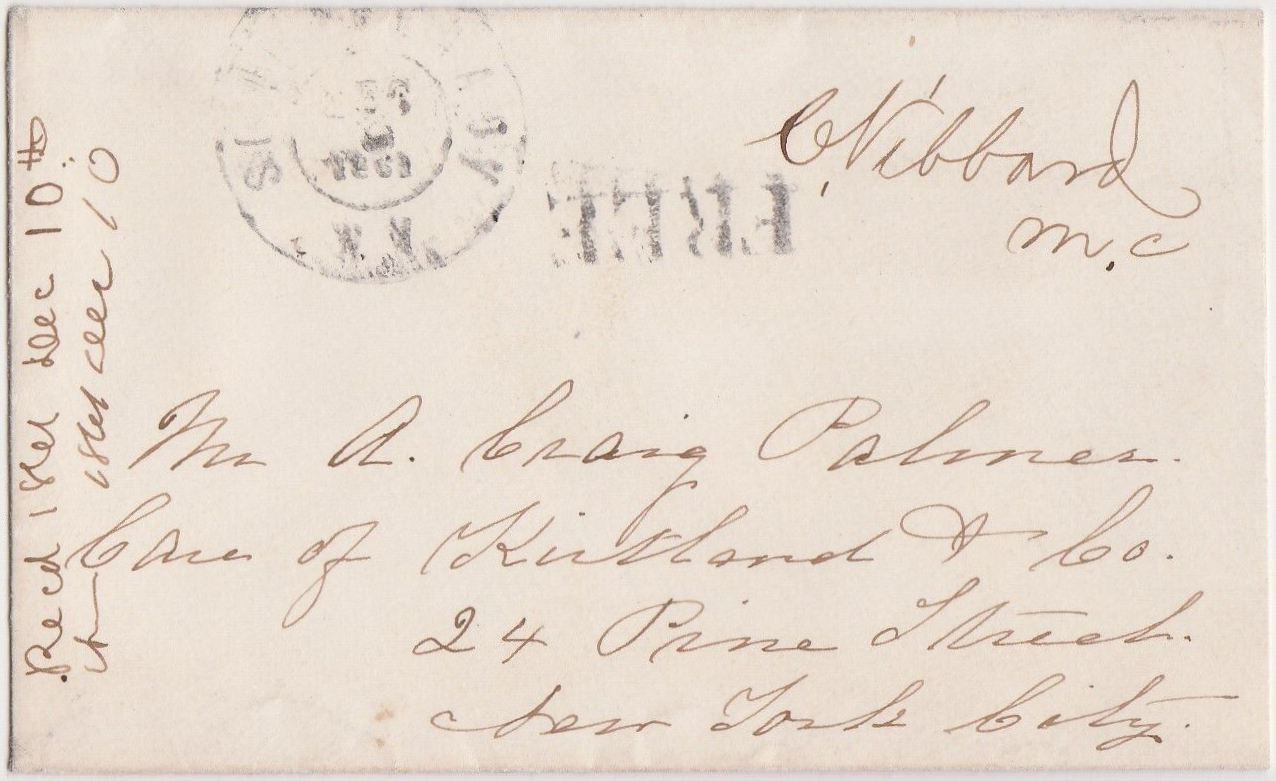 C. Vibbard
M.C
FREE
N.Y.
Mr A. Craig Palmer.
Care of Kirtland & Co.
24 Pine Street.
New York City.
Recd 1861 Dec 10th
1861 Dec 10